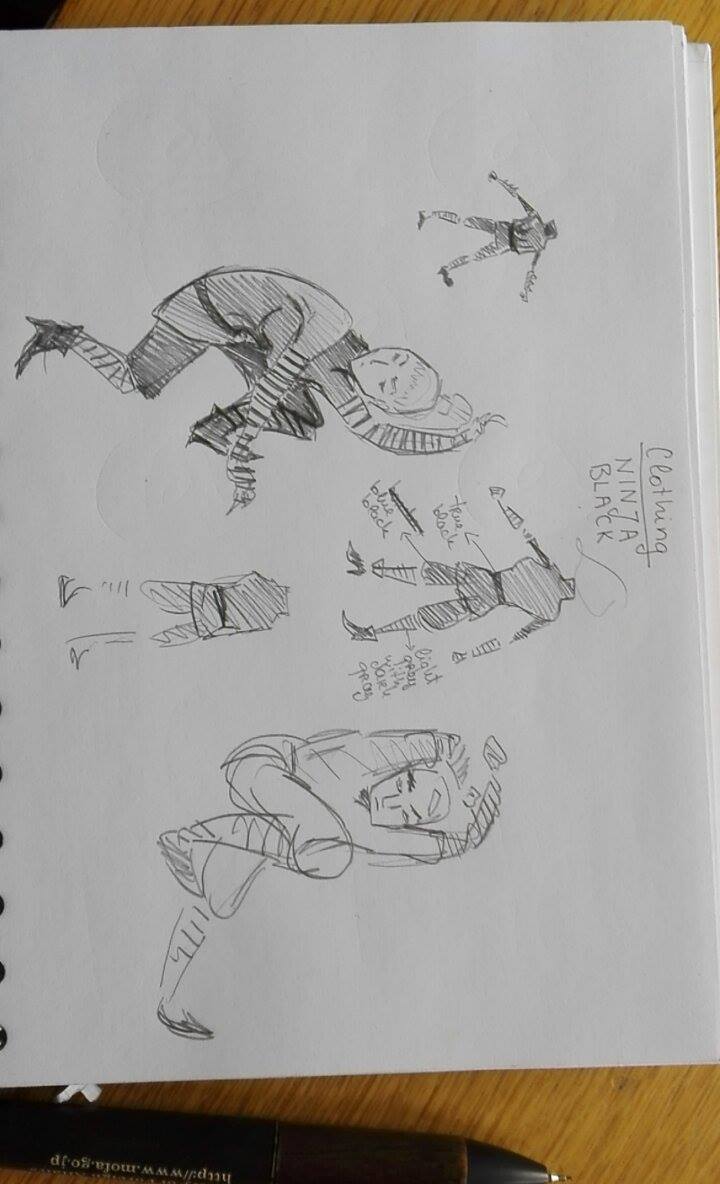 Clothing
NINJA
BLACK
true
black
blue
black
light
grey
with
dark
gray
http://www.mofa.go.jp